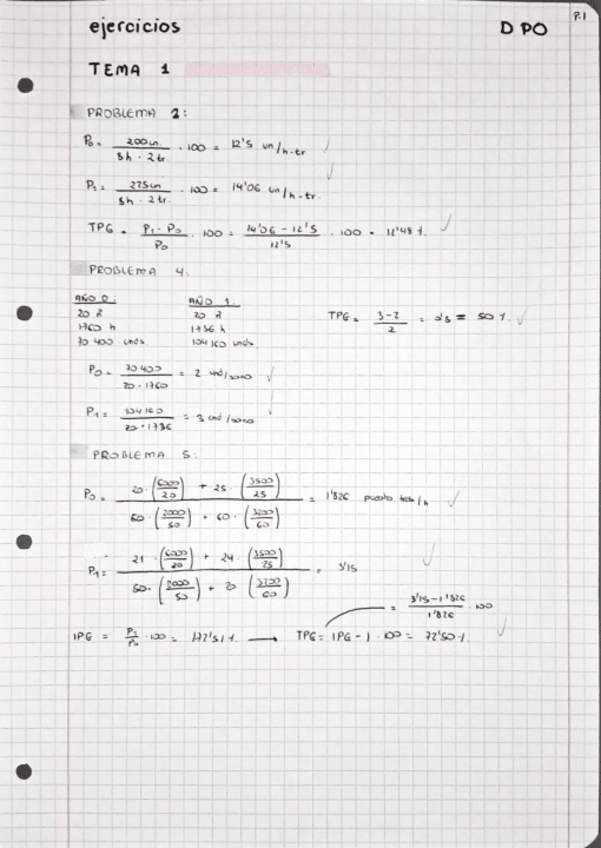 P.1
ejercicios D PO
TEMA 1
PROBLEMA 2:
P₀ = 200 un. / 8h · 2 tr. · 100 = 12'5 un/h-tr
P₁ = 225 un / 8h · 2 tr. · 100 = 14'06 un/h-tr.
TPG = P₁ - P₀ / P₀ · 100 = 14'06 - 12'5 / 12'5 · 100 = 12'48 %.
PROBLEMA 4:
AÑO 0: AÑO 1:
20 20
1760 h 1736 h
70 400 unds 104 160 unds.
TPG = 3-2 / 2 = 0'5 = 50 %.
P₀ = 70 400 / 20 · 1760 = 2 und/
P₁ = 104 160 / 20 · 1736 = 3 und/
PROBLEMA 5:
P₀ = 20 · (6000/20) + 25 · (3500/25) / 50 · (2000/50) + 60 · (3200/60) = 1'826
P₁ = 21 · (6000/20) + 24 · (3500/25) / 50 · (2000/50) + 20 (3200/60) = 3'15
= 3'15 - 1'826 / 1'826 · 100
IPG = P₁/P₀ · 100 = 172'51 %. → TPG = IPG - 1 · 100 = 72'50 %.